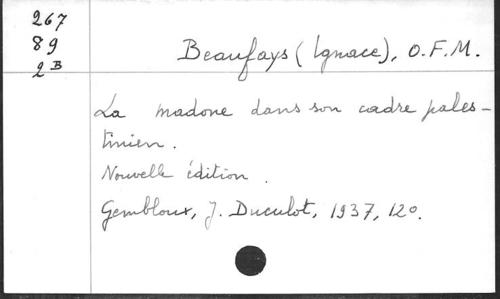 267
89
2B
Beaufays (Ignace), O.F.M.
La madone dans son cadre pales-
tinien.
Nouvelle édition.
Gembloux, J. Duculot, 1937, 12o.